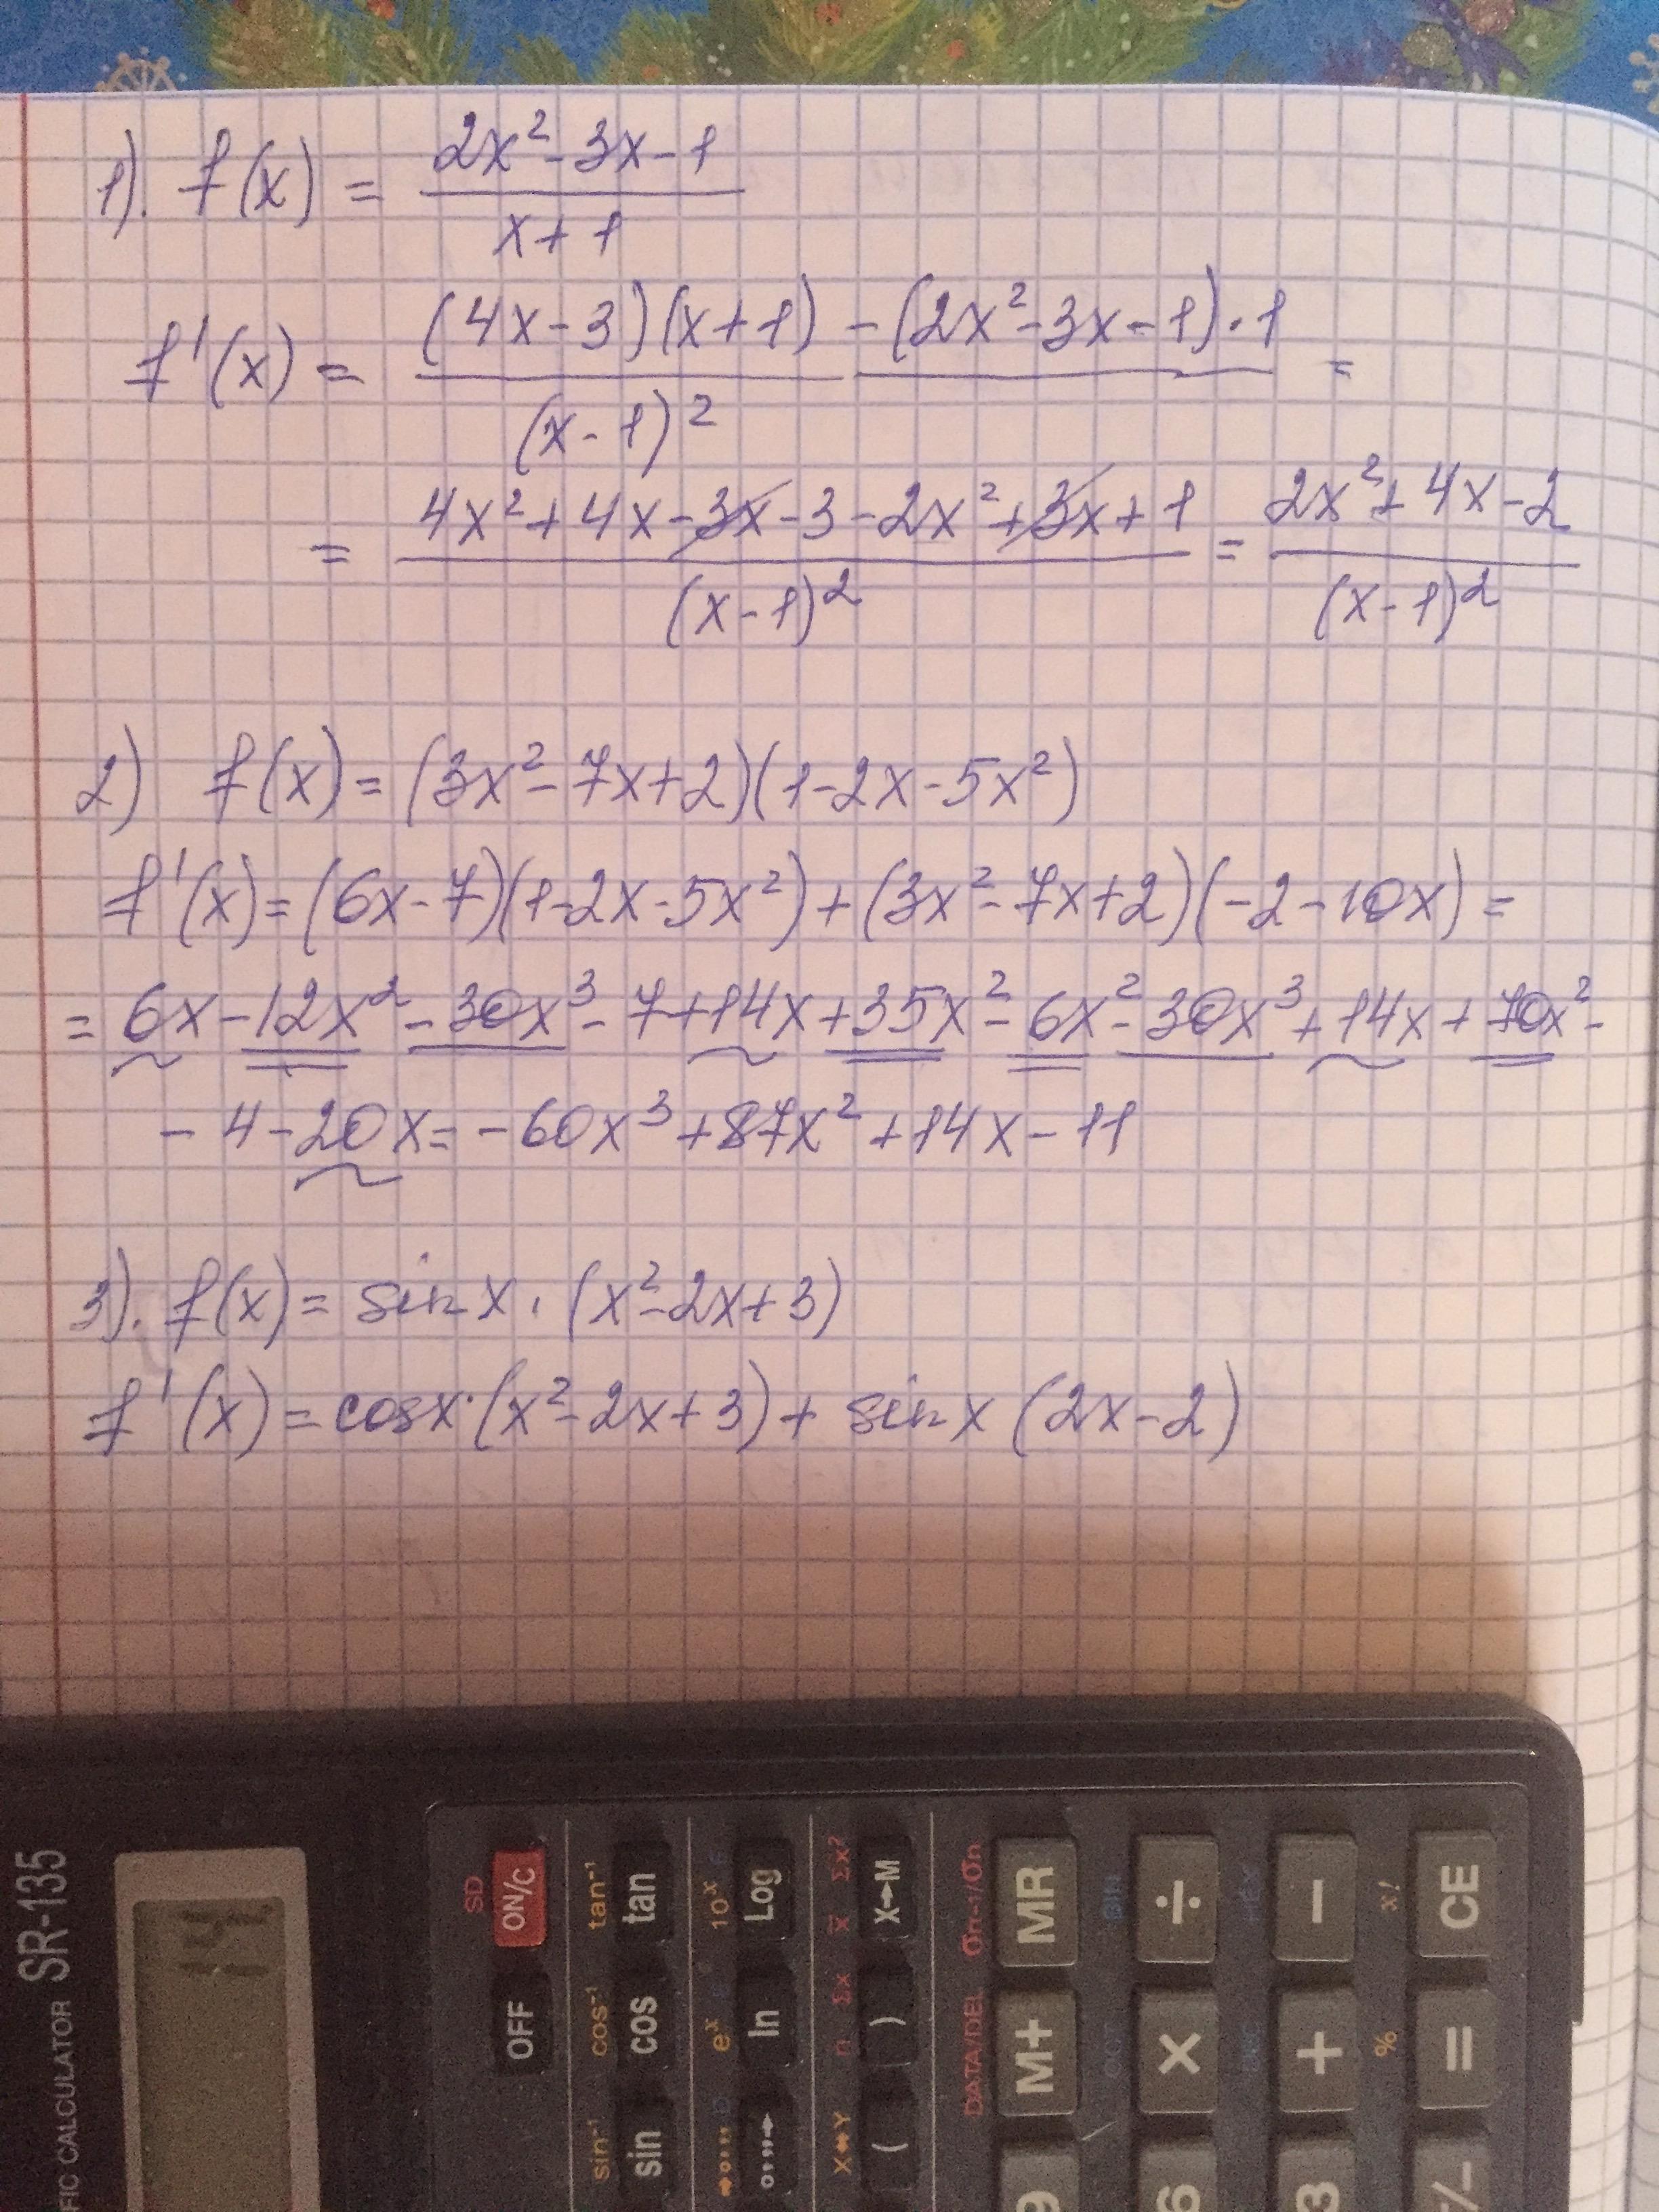 1). f(x) = (2x² - 3x - 1)/(x + 1)
f'(x) = ((4x - 3)(x + 1) - (2x² - 3x - 1)·1)/(x - 1)² =
= (4x² + 4x - 3x - 3 - 2x² + 3x + 1)/(x - 1)² = (2x² + 4x - 2)/(x - 1)²
2) f(x) = (3x² - 7x + 2)(1 - 2x - 5x²)
f'(x) = (6x - 7)(1 - 2x - 5x²) + (3x² - 7x + 2)(-2 - 10x) =
= 6x - 12x² - 30x³ - 7 + 14x + 35x² - 6x² - 30x³ + 14x + 70x² -
- 4 - 20x = -60x³ + 87x² + 14x - 11
3). f(x) = sin x · (x² - 2x + 3)
f'(x) = cos x · (x² - 2x + 3) + sin x (2x - 2)
FIC CALCULATOR SR-135
SD
ON/C
OFF
tan⁻¹
tan
cos⁻¹
cos
sin⁻¹
sin
10ˣ
Log
eˣ
ln
→o,,,
o,,,→
Σx²
x̄
X→M
Σx
n
)
X↔Y
(
σn-1/σn
MR
DATA/DEL
M+
9
BIN
÷
OCT
×
6
HEX
−
DEC
+
3
x!
CE
%
=
/-